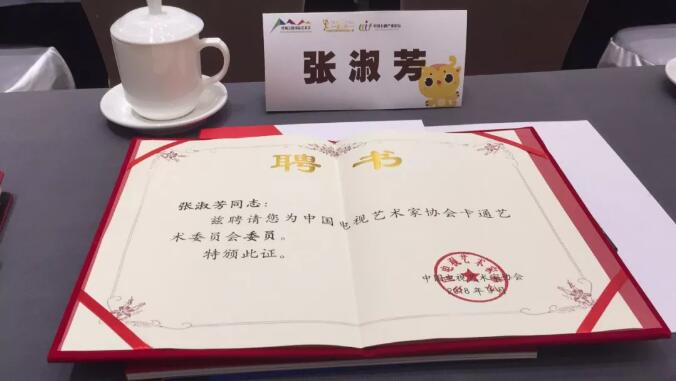 张淑芳
聘书
张淑芳同志：
兹聘请您为中国电视艺术家协会卡通艺
术委员会委员。
特颁此证。
中国电视艺术家协会